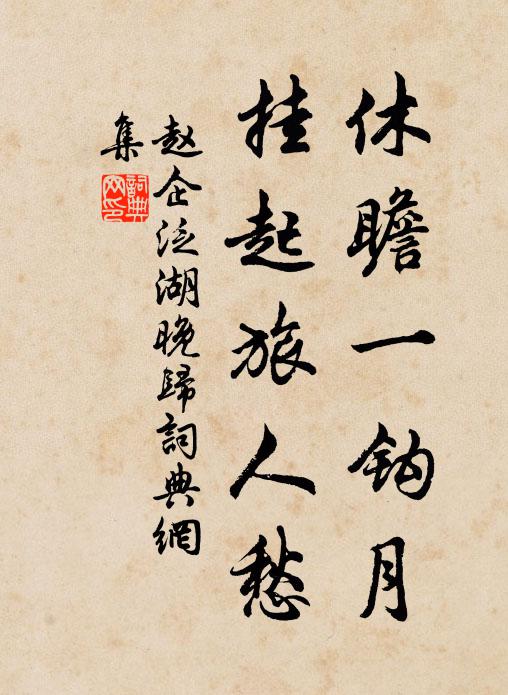 休瞻一钩月
挂起旅人愁
赵企泛湖晚歸詞典網
集
詞典
网印